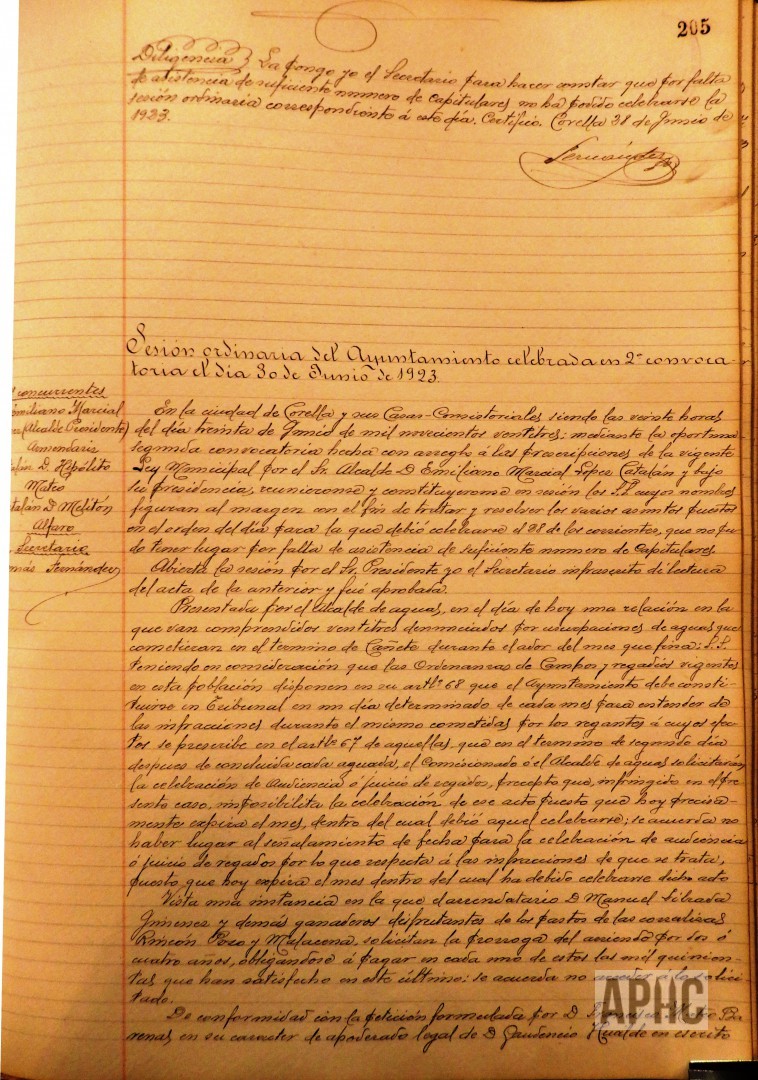 205
Diligencia. La pongo yo el Secretario para hacer constar que por falta
de asistencia de suficiente numero de capitulares no ha podido celebrarse la
sesión ordinaria correspondiente á este dia. Certifico. Corella 28 de Junio de
1923.
Fernández
Sesión ordinaria del Ayuntamiento celebrada en 2ª convoca-
toria el día 30 de Junio de 1923.
concurrentes
Emiliano Marcial
(Alcalde Presidente)
Armendariz
D. Hipólito
Mateo
Catalán D. Melitón
Alfaro
Secretario
Tomás Fernández
En la ciudad de Corella y sus Casas-Consistoriales siendo las veinte horas
del día treinta de Junio de mil novecientos ventitres: mediante la oportuna
segunda convocatoria hecha con arreglo á las prescripciones de la vigente
Ley Municipal por el Sr. Alcalde D Emiliano Marcial Lopez Catalán y bajo
su presidencia, reunieronse y constituyeronse en sesión los S.S. cuyos nombres
figuran al margen con el fin de tratar y resolver los varios asuntos puestos
en el orden del día para la que debió celebrarse el 28 de los corrientes, que no pu-
do tener lugar por falta de asistencia de suficiente numero de Capitulares
Abierta la sesión por el Sr. Presidente yo el Secretario infrascrito di lectura
del acta de la anterior y fué aprobada.
Presentada por el Alcalde de aguas, en el día de hoy una relación en la
que van comprendidos ventitres denunciados por usurpaciones de aguas que
cometieran en el termino de Cañete durante el ador del mes que fina; S.S.
teniendo en consideración que las Ordenanzas de Campos y regadíos vigentes
en esta población disponen en su artlº 68 que el Ayuntamiento debe consti-
tuirse en Tribunal en un día determinado de cada mes para entender de
las infracciones durante el mismo cometidas por los regantes á cuyos efec-
tos se prescribe en el artlº 67 de aquellas, que en el termino de segundo día
despues de concluida cada aguada, el Comisionado ó el Alcalde de aguas solicitarán
la celebración de Audiencia ó juicio de regados, precepto que, infringido en el pre-
sente caso, imposibilita la celebración de ese acto puesto que hoy precisa-
mente expira el mes, dentro del cual debió aquel celebrarse; se acuerda no
haber lugar al señalamiento de fecha para la celebración de audiencia
ó juicio de regados por lo que respecta á las infracciones de que se trata,
puesto que hoy expira el mes dentro del cual ha debido celebrarse dicho acto
Vista una instancia en la que el arrendatario D Manuel Librada
Gimenez y demás ganaderos disfrutantes de los pastos de las corralizas
Rincón Poso y Mulacena, solicitan la prorroga del arriendo por dos ó
cuatro años, obligandose á pagar en cada uno de estos las mil quinien-
tas que han satisfecho en este último: se acuerda no acceder á lo solici-
tado.
De conformidad con la petición formulada por D Francisco Mateo
en su caracter de apoderado legal de D Gaudencio Alcalde en escrito
APAC